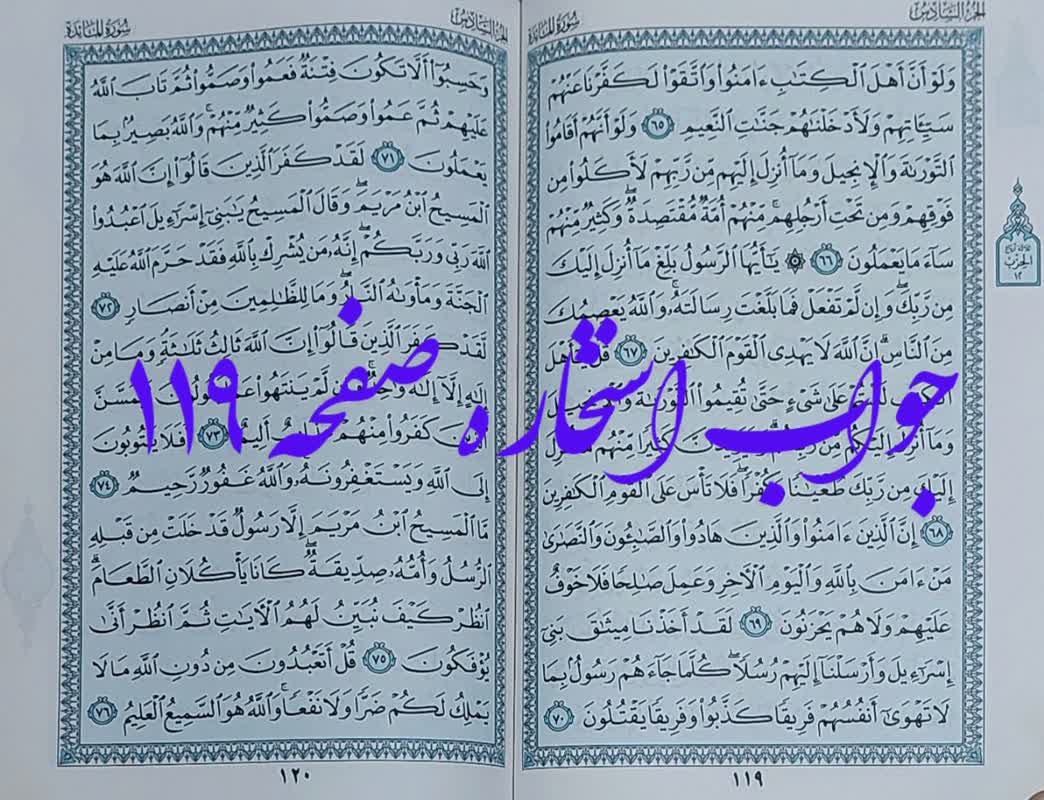 الجزء السادس
سورة المائدة
وَلَوْ أَنَّ أَهْلَ ٱلْكِتَٰبِ ءَامَنُوا۟ وَٱتَّقَوْا۟ لَكَفَّرْنَا عَنْهُمْ
سَيِّـَٔاتِهِمْ وَلَأَدْخَلْنَٰهُمْ جَنَّٰتِ ٱلنَّعِيمِ ٦٥ وَلَوْ أَنَّهُمْ أَقَامُوا۟
ٱلتَّوْرَىٰةَ وَٱلْإِنجِيلَ وَمَآ أُنزِلَ إِلَيْهِم مِّن رَّبِّهِمْ لَأَكَلُوا۟ مِن
فَوْقِهِمْ وَمِن تَحْتِ أَرْجُلِهِم مِّنْهُمْ أُمَّةٌ مُّقْتَصِدَةٌ وَكَثِيرٌ مِّنْهُمْ
سَآءَ مَا يَعْمَلُونَ ٦٦ ۞ يَٰٓأَيُّهَا ٱلرَّسُولُ بَلِّغْ مَآ أُنزِلَ إِلَيْكَ
مِن رَّبِّكَ وَإِن لَّمْ تَفْعَلْ فَمَا بَلَّغْتَ رِسَالَتَهُۥ وَٱللَّهُ يَعْصِمُكَ
مِنَ ٱلنَّاسِ إِنَّ ٱللَّهَ لَا يَهْدِى ٱلْقَوْمَ ٱلْكَٰفِرِينَ ٦٧ قُلْ يَٰٓأَهْلَ
ٱلْكِتَٰبِ لَسْتُمْ عَلَىٰ شَىْءٍ حَتَّىٰ تُقِيمُوا۟ ٱلتَّوْرَىٰةَ وَٱلْإِنجِيلَ
وَمَآ أُنزِلَ إِلَيْكُم مِّن رَّبِّكُمْ وَلَيَزِيدَنَّ كَثِيرًا مِّنْهُم مَّآ أُنزِلَ
إِلَيْكَ مِن رَّبِّكَ طُغْيَٰنًا وَكُفْرًا فَلَا تَأْسَ عَلَى ٱلْقَوْمِ ٱلْكَٰفِرِينَ
٦٨ إِنَّ ٱلَّذِينَ ءَامَنُوا۟ وَٱلَّذِينَ هَادُوا۟ وَٱلصَّٰبِـُٔونَ وَٱلنَّصَٰرَىٰ
مَنْ ءَامَنَ بِٱللَّهِ وَٱلْيَوْمِ ٱلْأَخِرِ وَعَمِلَ صَٰلِحًا فَلَا خَوْفٌ
عَلَيْهِمْ وَلَا هُمْ يَحْزَنُونَ ٦٩ لَقَدْ أَخَذْنَا مِيثَٰقَ بَنِىٓ
إِسْرَٰٓءِيلَ وَأَرْسَلْنَآ إِلَيْهِمْ رُسُلًا كُلَّمَا جَآءَهُمْ رَسُولٌۢ بِمَا
لَا تَهْوَىٰٓ أَنفُسُهُمْ فَرِيقًا كَذَّبُوا۟ وَفَرِيقًا يَقْتُلُونَ ٧٠
١١٩
الحزب
١٢
الجزء السادس
سورة المائدة
وَحَسِبُوٓا۟ أَلَّا تَكُونَ فِتْنَةٌ فَعَمُوا۟ وَصَمُّوا۟ ثُمَّ تَابَ ٱللَّهُ
عَلَيْهِمْ ثُمَّ عَمُوا۟ وَصَمُّوا۟ كَثِيرٌ مِّنْهُمْ وَٱللَّهُ بَصِيرٌۢ بِمَا
يَعْمَلُونَ ٧١ لَقَدْ كَفَرَ ٱلَّذِينَ قَالُوٓا۟ إِنَّ ٱللَّهَ هُوَ
ٱلْمَسِيحُ ٱبْنُ مَرْيَمَ وَقَالَ ٱلْمَسِيحُ يَٰبَنِىٓ إِسْرَٰٓءِيلَ ٱعْبُدُوا۟
ٱللَّهَ رَبِّى وَرَبَّكُمْ إِنَّهُۥ مَن يُشْرِكْ بِٱللَّهِ فَقَدْ حَرَّمَ ٱللَّهُ عَلَيْهِ
ٱلْجَنَّةَ وَمَأْوَىٰهُ ٱلنَّارُ وَمَا لِلظَّٰلِمِينَ مِنْ أَنصَارٍ ٧٢
لَّقَدْ كَفَرَ ٱلَّذِينَ قَالُوٓا۟ إِنَّ ٱللَّهَ ثَالِثُ ثَلَٰثَةٍ وَمَا مِنْ
إِلَٰهٍ إِلَّآ إِلَٰهٌ وَٰحِدٌ وَإِن لَّمْ يَنتَهُوا۟ عَمَّا يَقُولُونَ لَيَمَسَّنَّ
ٱلَّذِينَ كَفَرُوا۟ مِنْهُمْ عَذَابٌ أَلِيمٌ ٧٣ أَفَلَا يَتُوبُونَ
إِلَى ٱللَّهِ وَيَسْتَغْفِرُونَهُۥ وَٱللَّهُ غَفُورٌ رَّحِيمٌ ٧٤
مَّا ٱلْمَسِيحُ ٱبْنُ مَرْيَمَ إِلَّا رَسُولٌ قَدْ خَلَتْ مِن قَبْلِهِ
ٱلرُّسُلُ وَأُمُّهُۥ صِدِّيقَةٌ كَانَا يَأْكُلَانِ ٱلطَّعَامَ
ٱنظُرْ كَيْفَ نُبَيِّنُ لَهُمُ ٱلْأَيَٰتِ ثُمَّ ٱنظُرْ أَنَّىٰ
يُؤْفَكُونَ ٧٥ قُلْ أَتَعْبُدُونَ مِن دُونِ ٱللَّهِ مَا لَا
يَمْلِكُ لَكُمْ ضَرًّا وَلَا نَفْعًا وَٱللَّهُ هُوَ ٱلسَّمِيعُ ٱلْعَلِيمُ ٧٦
١٢٠
جواب استخاره صفحه ١١٩